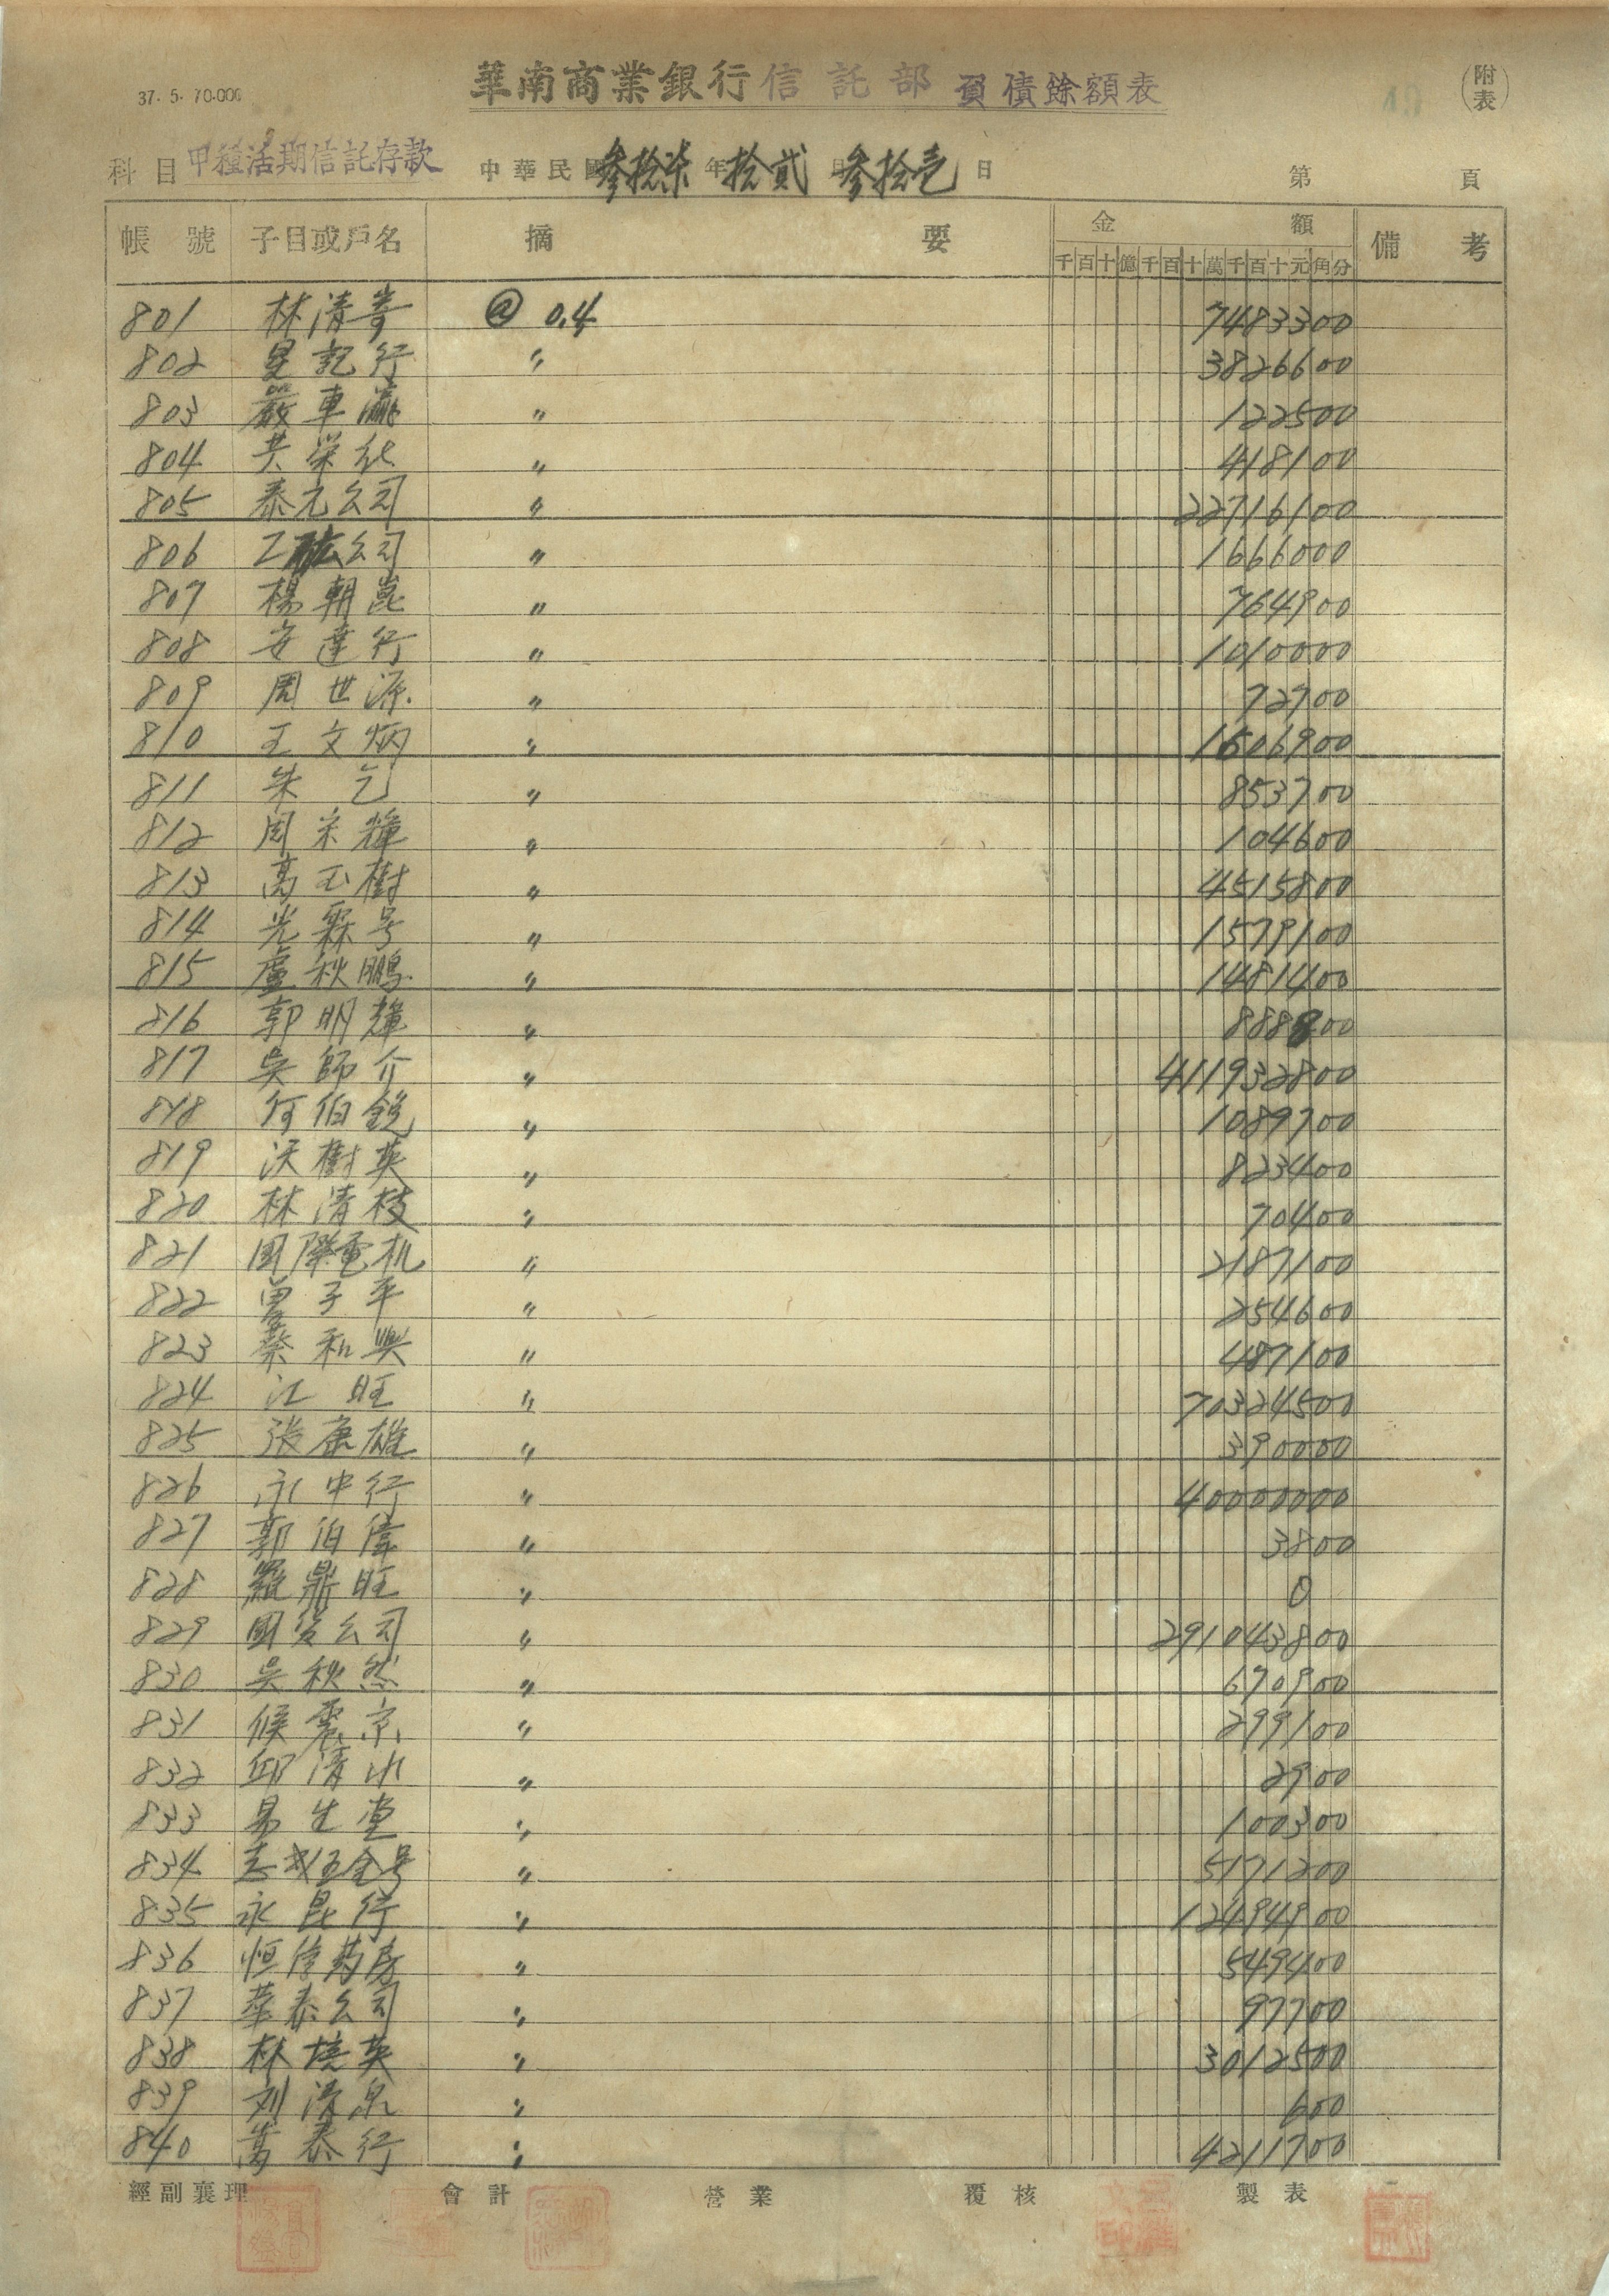 37. 5. 70.000
華南商業銀行信託部 負債餘額表
(附表)
科目 甲種活期信託存款 中華民國參拾柒年拾貳月參拾壱日 第 頁
帳號 子目或戶名 摘要 金額 備考
千百十億千百十萬千百十元角分
801 林清 @ 0.4 7483300
802 記行 〃 3826600
803 嚴車瀛 〃 122500
804 共榮社 〃 418100
805 泰元公司 〃 22716100
806 公司 〃 1666000
807 楊朝崑 〃 764900
808 安達行 〃 1010000
809 周世源 〃 72700
810 王文炳 〃 1606900
811 朱乞 〃 853700
812 周宗輝 〃 104600
813 高玉樹 〃 4515800
814 光霖号 〃 1579100
815 盧秋鵬 〃 1481400
816 郭明輝 〃 888800
817 吳師介 〃 411932800
818 何伯銳 〃 1089700
819 洪樹英 〃 823400
820 林清枝 〃 70400
821 国際電机 〃 2187100
822 曾子平 〃 254600
823 蔡和興 〃 487100
824 江旺 〃 70324500
825 張康雄 〃 390000
826 永中行 〃 40000000
827 郭伯偉 〃 3800
828 羅鼎旺 〃 0
829 國安公司 〃 291043800
830 吳秋然 〃 670900
831 候震京 〃 299100
832 邱清水 〃 2900
833 易生堂 〃 100300
834 志成五金号 〃 5171200
835 永昆行 〃 12494900
836 恒信葯房 〃 549400
837 華泰公司 〃 97700
838 林境英 〃 3012500
839 刘湯泉 〃 600
840 萬泰行 〃 4211700
經副襄理 會計 營業 覆核 製表